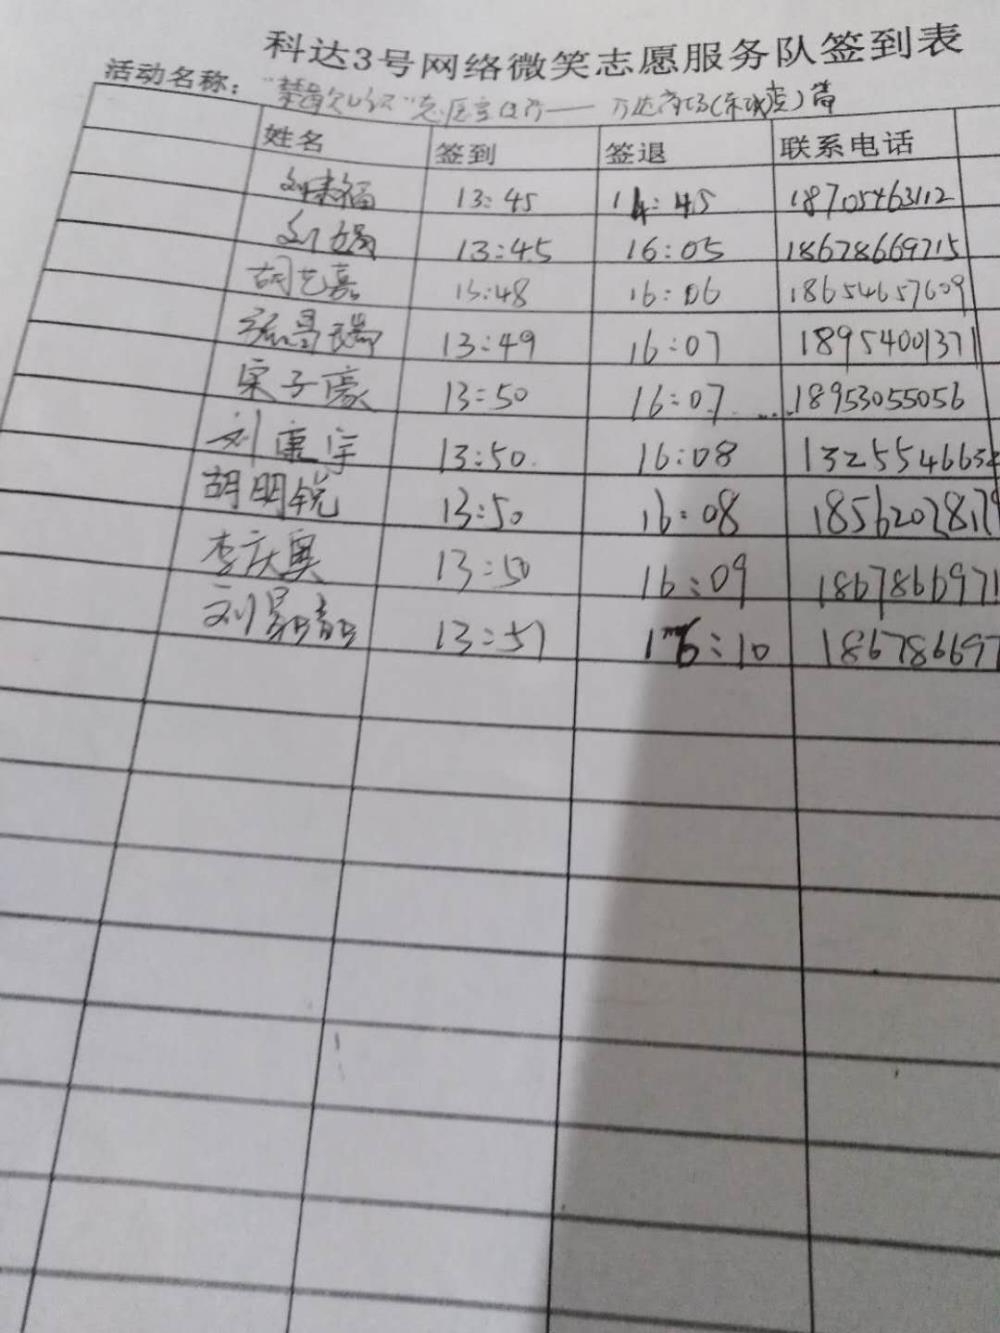 科达3号网络微笑志愿服务队签到表
活动名称:
姓名 签到 签退 联系电话
刘 福 13:45 14:45 18705463112
刘 13:45 16:05 18678669715
胡艺嘉 13:48 16:06 18654657609
张 瑞 13:49 16:07 18954001371
宋子豪 13:50 16:07 18953055056
刘康宇 13:50 16:08 1325546632
胡明锐 13:50 16:08 1856202817
李庆奥 13:50 16:09 1867866971
刘 13:51 16:10 186786697